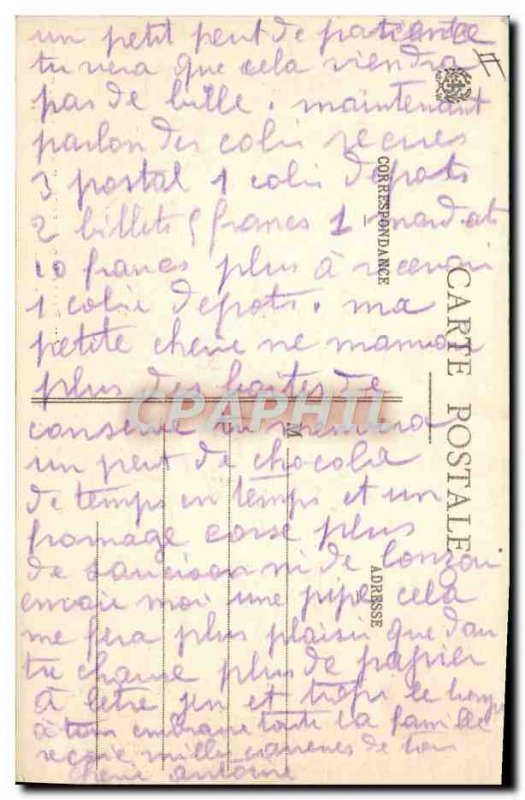 un petit peut de patiantce
tu vera que cela viendra
pas de bille. maintenant
parlon des colis recues
3 postal 1 colis depots
2 billets 5 francs 1 mandat
10 francs plus à recevoir
1 colis depots. ma
petite cherie ne m'anvoi
plus des boites de
conserve tu
un peut de chocola
de temps en temps et un
fromage corse plus
de saucisson ni de lonzou
envoie moi une pipe cela
me fera plus plaisir que d'au
tre chause plus de papier
à letre jen et trops je
embrasse toute la famille
reçoie mille caresses de ton
cheri antoine
II
CORRESPONDANCE
CARTE POSTALE
M
ADRESSE
CPAPHIL